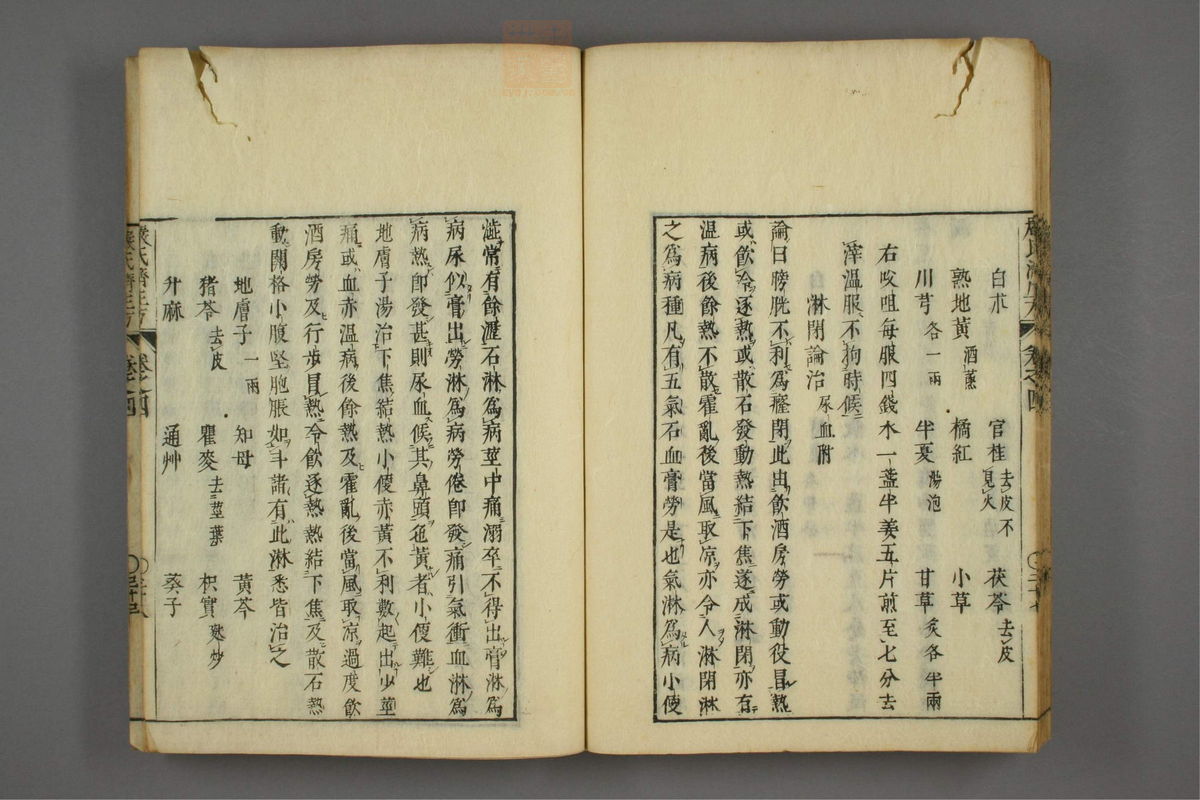 白朮　官桂去皮不見火　茯苓去皮
熟地黃酒蒸　橘紅　小草
川芎各一兩　半夏湯泡　甘草炙各半兩
右㕮咀每服四錢水一盞半姜五片煎至七分去
滓溫服不拘時候
淋閉論治尿血附
論曰膀胱不利為癃閉此由飲酒房勞或動役冒熱
或飲冷逐熱或散石發動熱結下焦遂成淋閉亦有
溫病後餘熱不散霍亂後當風取凉亦令人淋閉淋
之為病種凡有五氣石血膏勞是也氣淋為病小便
澁常有餘瀝石淋為病莖中痛溺卒不得出膏淋為
病尿似膏出勞淋為病勞倦即發痛引氣衝血淋為
病熱即發甚則尿血候其鼻頭色黃者小便難也
地膚子湯治下焦結熱小便赤黃不利數起出少莖
痛或血赤溫病後餘熱及霍亂後當風取凉過度飲
酒房勞及行步冒熱令飲逐熱熱結下焦及散石熱
動關格小腹堅胞脹如斗諸有此淋悉皆治之
地膚子一兩　知母　黃芩
猪苓去皮　瞿麥去莖葉　枳實麩炒
升麻　通艸　葵子
嚴氏濟生方　卷之四